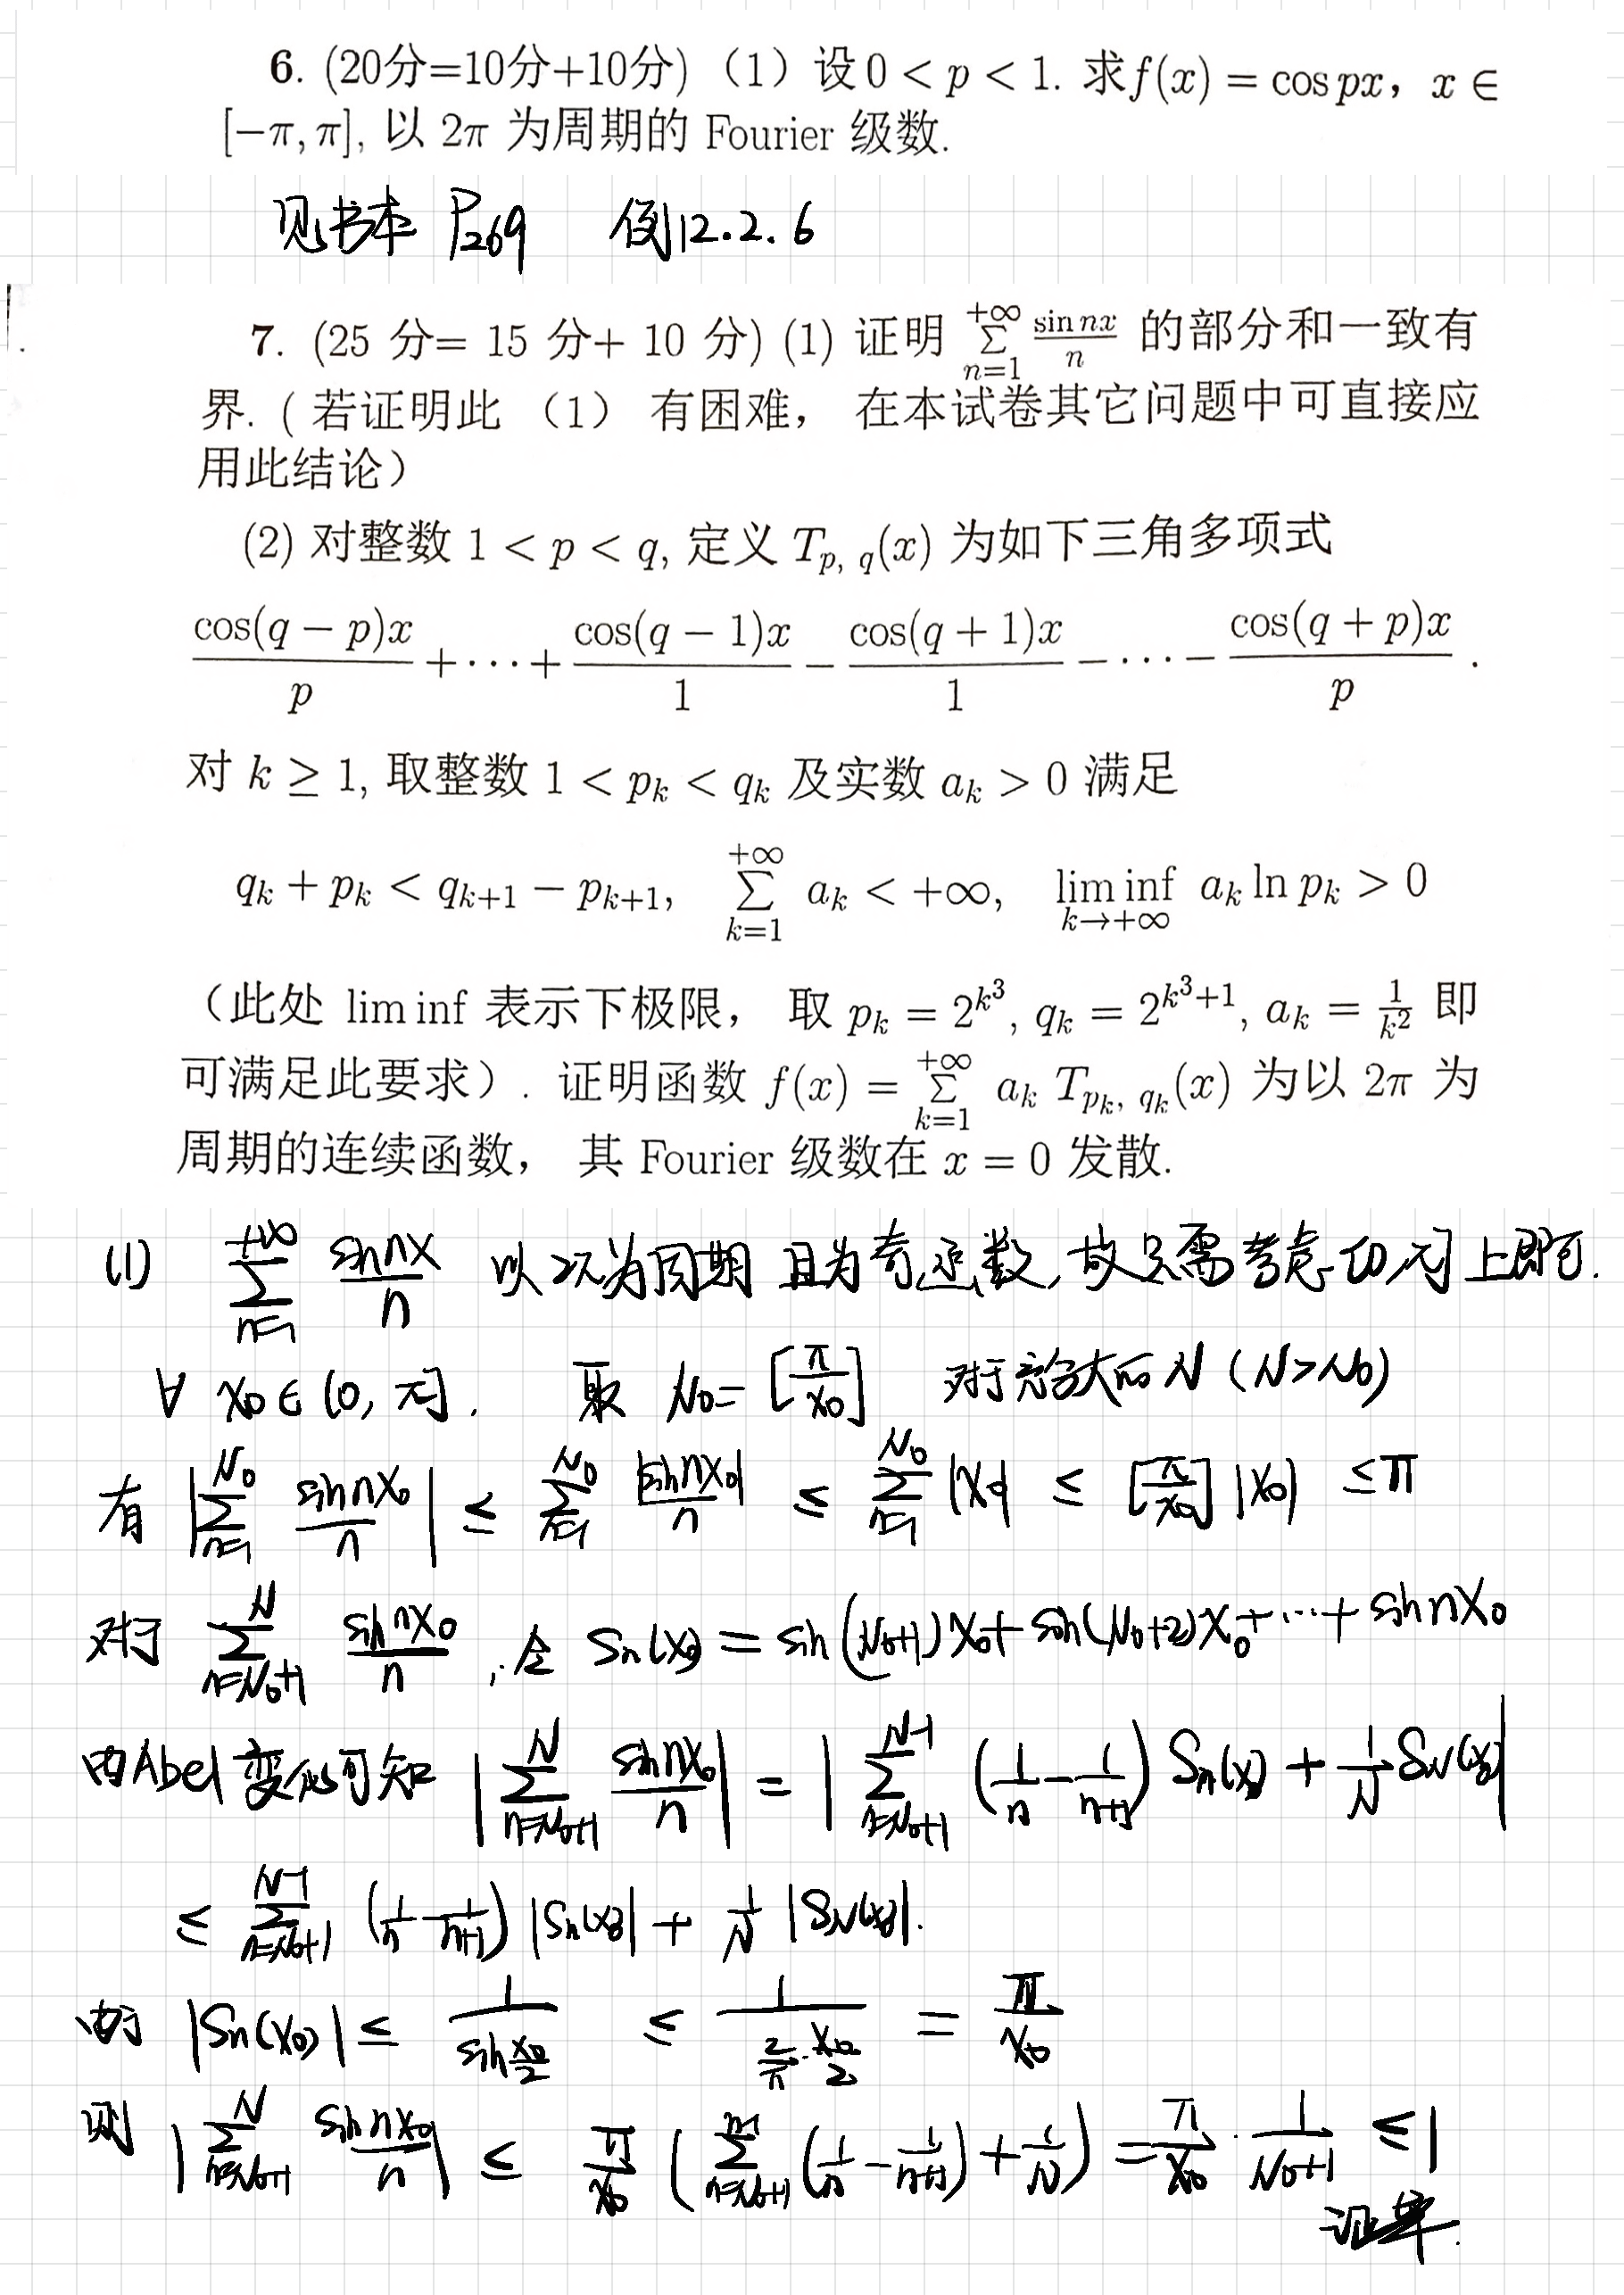 6. (20分=10分+10分)（1）设 0 < p < 1. 求 f(x) = cos px，x ∈
[−π, π], 以 2π 为周期的 Fourier 级数.
见书本 P₂₆₉ 例12.2.6
7. (25 分= 15 分+ 10 分) (1) 证明 \sum_{n=1}^{+∞} \frac{\sin nx}{n} 的部分和一致有
界. ( 若证明此 （1） 有困难， 在本试卷其它问题中可直接应
用此结论）
(2) 对整数 1 < p < q, 定义 T_{p, q}(x) 为如下三角多项式
\frac{\cos(q − p)x}{p} + ⋯ + \frac{\cos(q − 1)x}{1} − \frac{\cos(q + 1)x}{1} − ⋯ − \frac{\cos(q + p)x}{p} .
对 k ≥ 1, 取整数 1 < p_k < q_k 及实数 a_k > 0 满足
q_k + p_k < q_{k+1} − p_{k+1}, \sum_{k=1}^{+∞} a_k < +∞, \liminf_{k→+∞} a_k ln p_k > 0
（此处 lim inf 表示下极限， 取 p_k = 2^{k^3}, q_k = 2^{k^3+1}, a_k = \frac{1}{k^2} 即
可满足此要求）. 证明函数 f(x) = \sum_{k=1}^{+∞} a_k T_{p_k, q_k}(x) 为以 2π 为
周期的连续函数， 其 Fourier 级数在 x = 0 发散.
(1) \sum_{n=1}^{+∞} \frac{\sin nx}{n} 以2π为周期 且为奇函数, 故只需考虑 [0,π] 上即可.
∀ x_0 ∈ (0, π]. 取 N_0 = [\frac{π}{x_0}] 对于充分大的 N (N>N_0)
有 |\sum_{n=1}^{N_0} \frac{\sin nx_0}{n}| ≤ \sum_{n=1}^{N_0} \frac{|\sin nx_0|}{n} ≤ \sum_{n=1}^{N_0} |x_0| ≤ [\frac{π}{x_0}] |x_0| ≤ π
对于 \sum_{n=N_0+1}^{N} \frac{\sin nx_0}{n}, 令 S_n(x_0) = sin(N_0+1)x_0 + sin(N_0+2)x_0 + ⋯ + sin nx_0
由Abel变换可知 |\sum_{n=N_0+1}^{N} \frac{\sin nx_0}{n}| = |\sum_{n=N_0+1}^{N-1} (\frac{1}{n} − \frac{1}{n+1}) S_n(x_0) + \frac{1}{N} S_N(x_0)|
≤ \sum_{n=N_0+1}^{N-1} (\frac{1}{n} − \frac{1}{n+1}) |S_n(x_0)| + \frac{1}{N} |S_N(x_0)|.
由于 |S_n(x_0)| ≤ \frac{1}{\sin \frac{x_0}{2}} ≤ \frac{1}{\frac{2}{π}·\frac{x_0}{2}} = \frac{π}{x_0}
则 |\sum_{n=N_0+1}^{N} \frac{\sin nx_0}{n}| ≤ \frac{π}{x_0} (\sum_{n=N_0+1}^{n-1} (\frac{1}{n} − \frac{1}{n+1}) + \frac{1}{N}) = \frac{π}{x_0} · \frac{1}{N_0+1} ≤ 1
证毕.